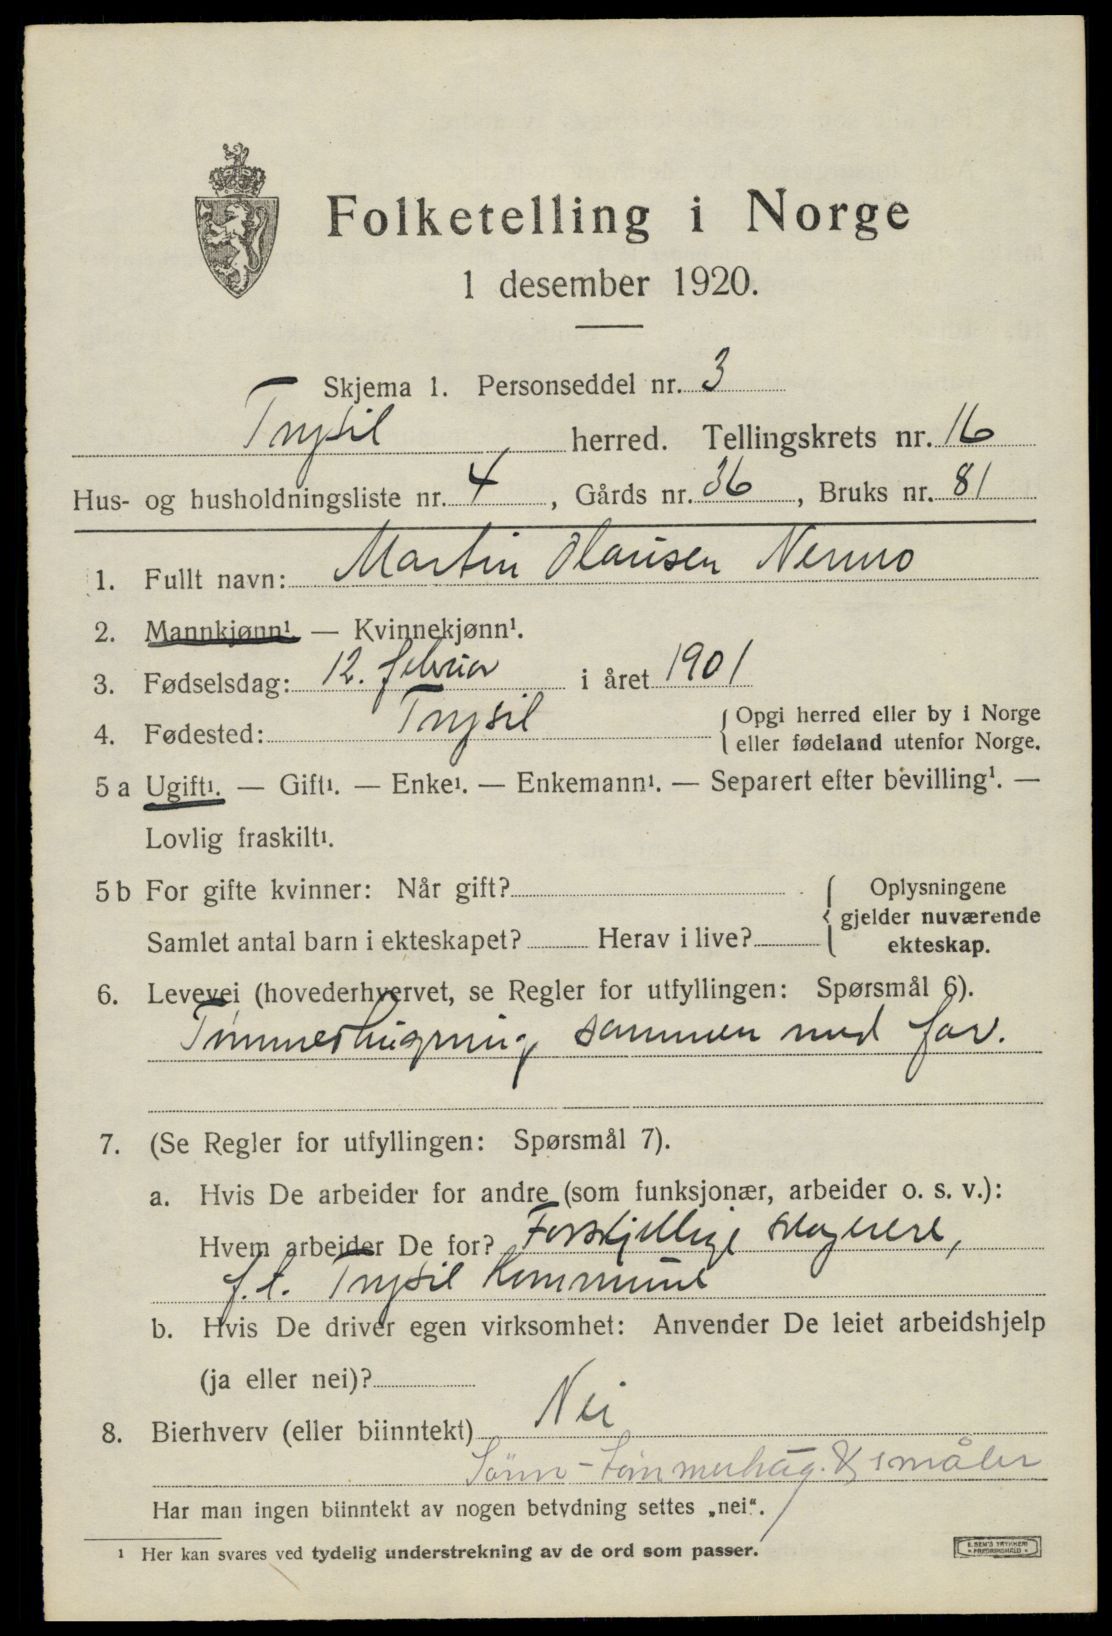 Folketelling i Norge
1 desember 1920.
Skjema 1. Personseddel nr. 3
Trysil herred. Tellingskrets nr. 16
Hus- og husholdningsliste nr. 4, Gårds nr. 36, Bruks nr. 81
1. Fullt navn: Martin Olausen Nermo
2. Mannkjønn¹. — Kvinnekjønn¹.
3. Fødselsdag: 12. februar i året 1901
4. Fødested: Trysil {Opgi herred eller by i Norge
eller fødeland utenfor Norge.
5 a Ugift¹. — Gift¹. — Enke¹. — Enkemann¹. — Separert efter bevilling¹. —
Lovlig fraskilt¹.
5 b For gifte kvinner: Når gift? { Oplysningene
gjelder nuværende
Samlet antal barn i ekteskapet? Herav i live? ekteskap.
6. Levevei (hovederhvervet, se Regler for utfyllingen: Spørsmål 6).
Tømmerhugning sammen med far.
7. (Se Regler for utfyllingen: Spørsmål 7).
a. Hvis De arbeider for andre (som funksjonær, arbeider o. s. v.):
Hvem arbeider De for? Forskjellige skogeiere,
f. t. Trysil Kommune
b. Hvis De driver egen virksomhet: Anvender De leiet arbeidshjelp
(ja eller nei)?
8. Bierhverv (eller biinntekt) Nei
Sønn - tømmerhug.
Har man ingen biinntekt av nogen betydning settes „nei“.
¹ Her kan svares ved tydelig understrekning av de ord som passer.
E. SEM'S TRYKKERI
FREDRIKSHALD